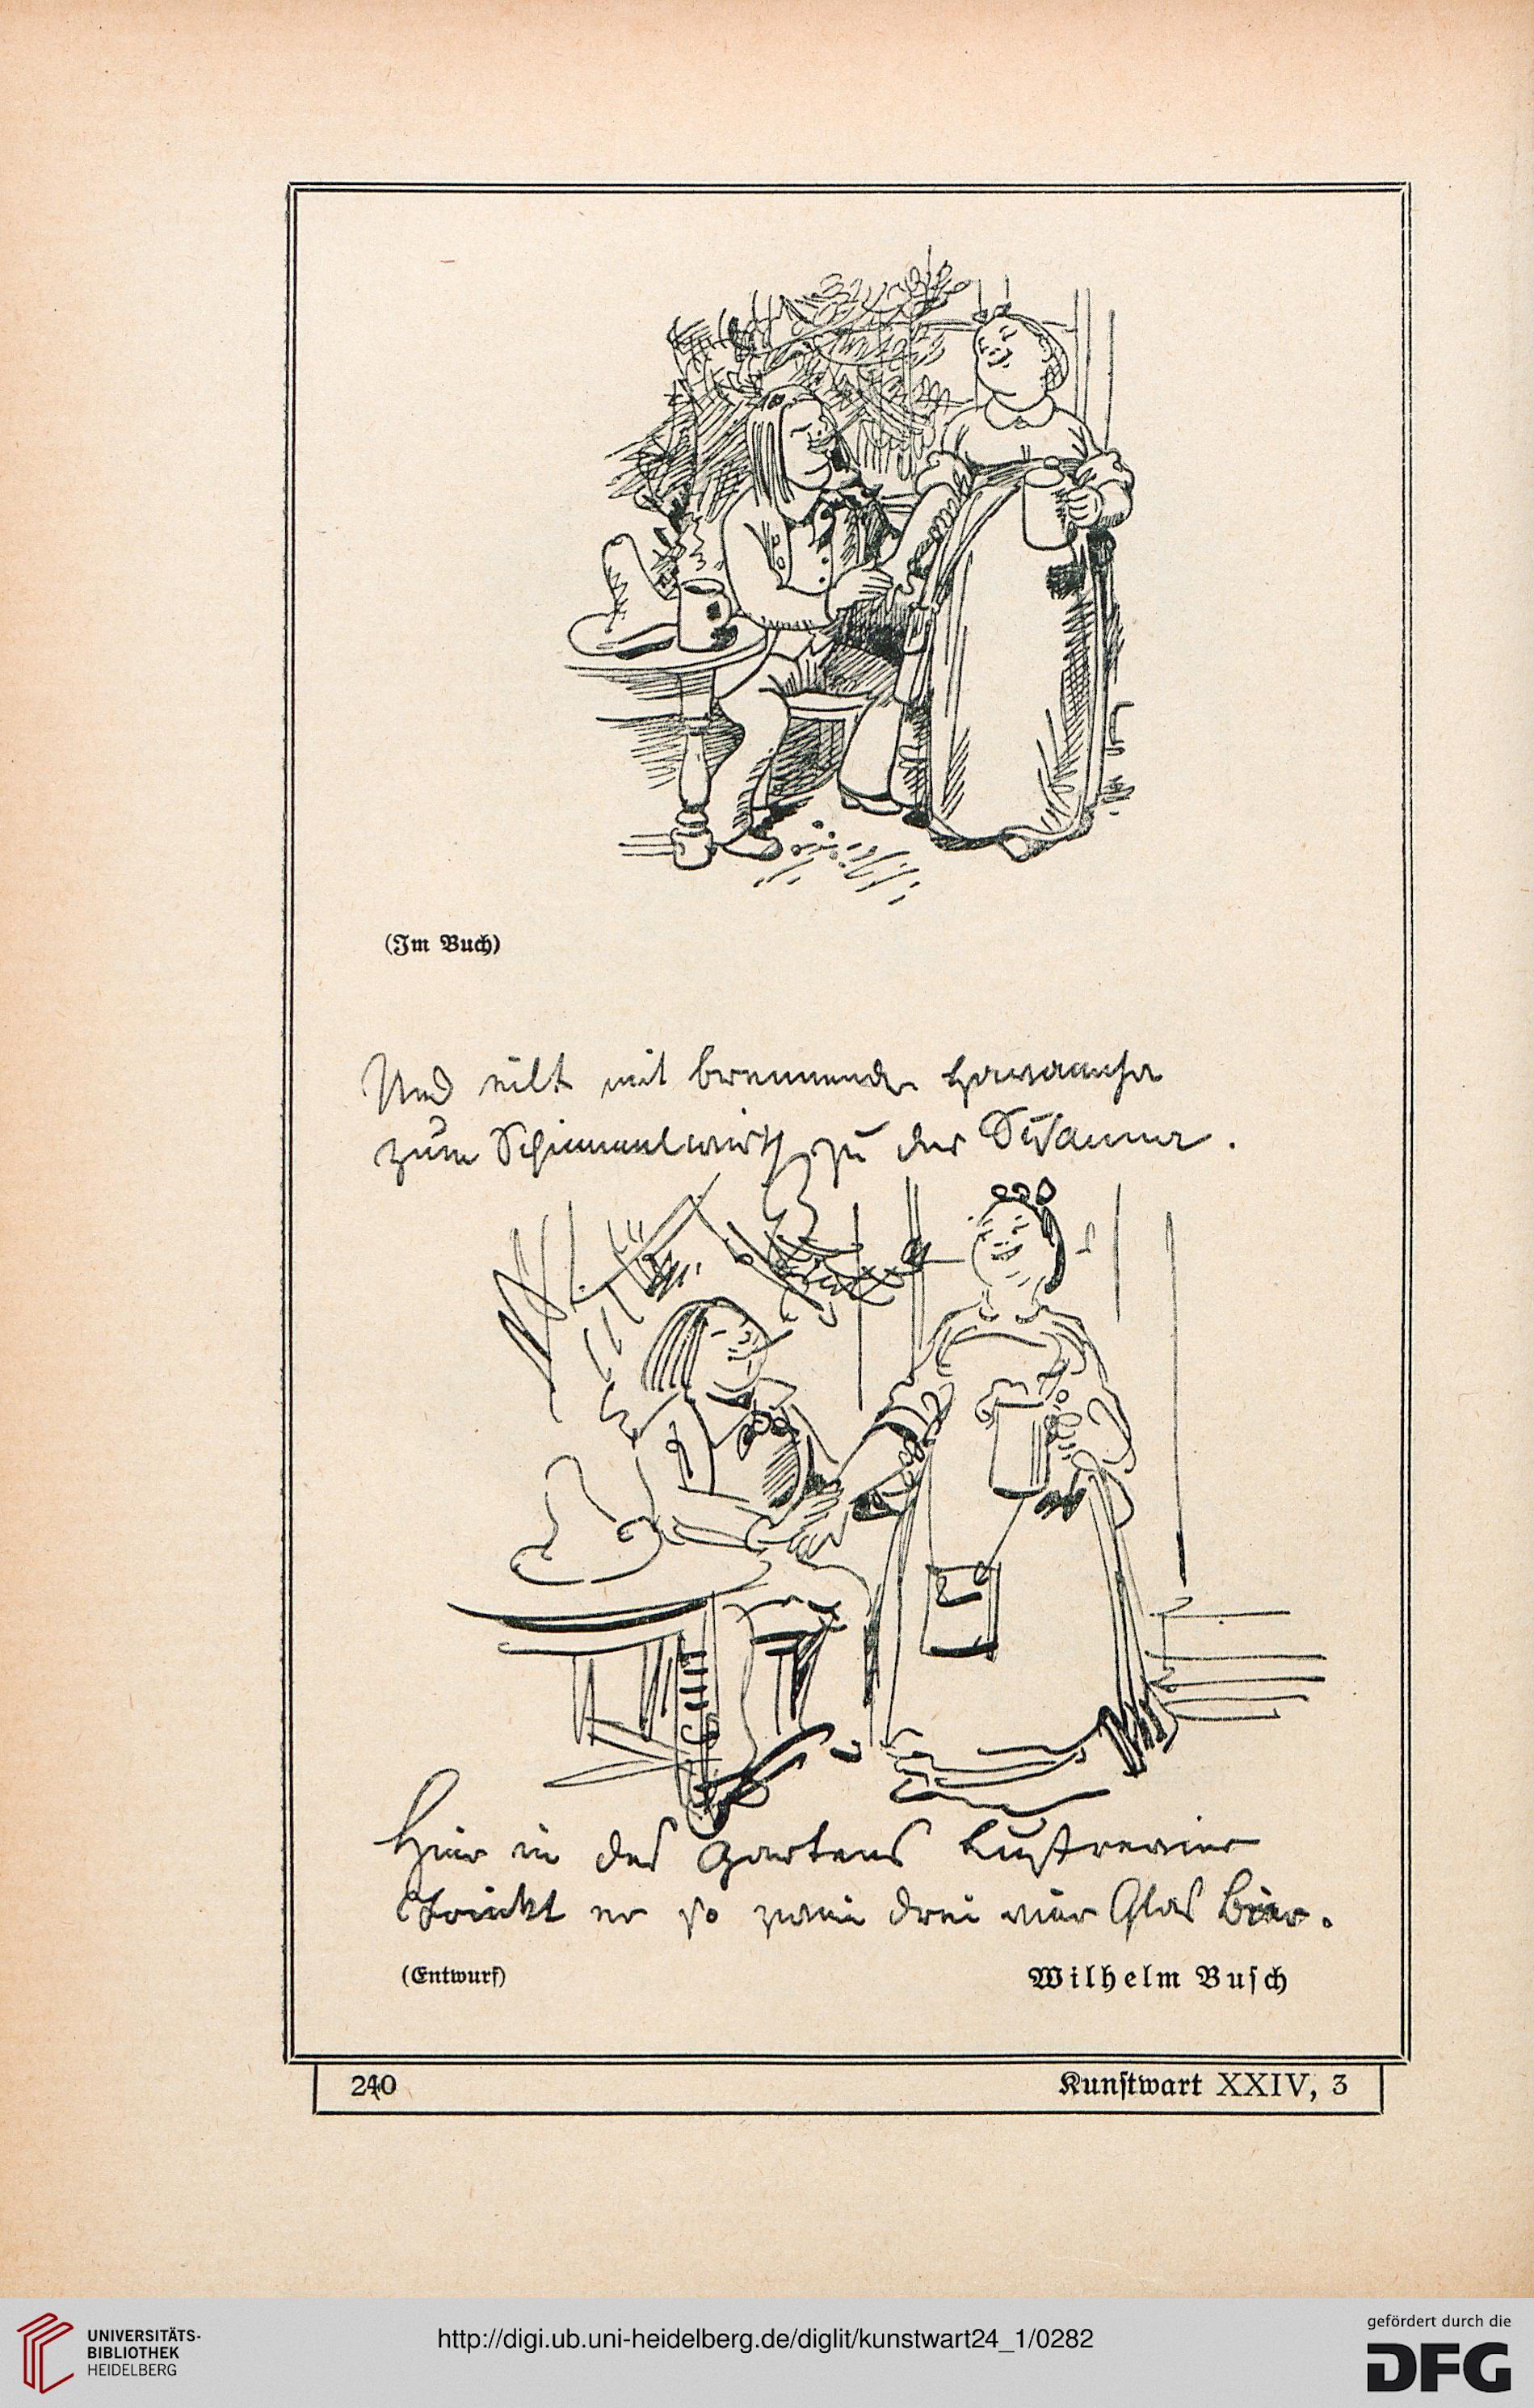 (Im Buch)
Und eilt mit brennender Havannah
zum Schimmelwirth zu der Susanna.
Hier in des Gartens Lustrevier
Trinkt er so zwei drei vier Glas Bier.
(Entwurf)
Wilhelm Busch
240
Kunstwart XXIV, 3
UNIVERSITÄTS-
BIBLIOTHEK
HEIDELBERG
http://digi.ub.uni-heidelberg.de/diglit/kunstwart24_1/0282
gefördert durch die
DFG